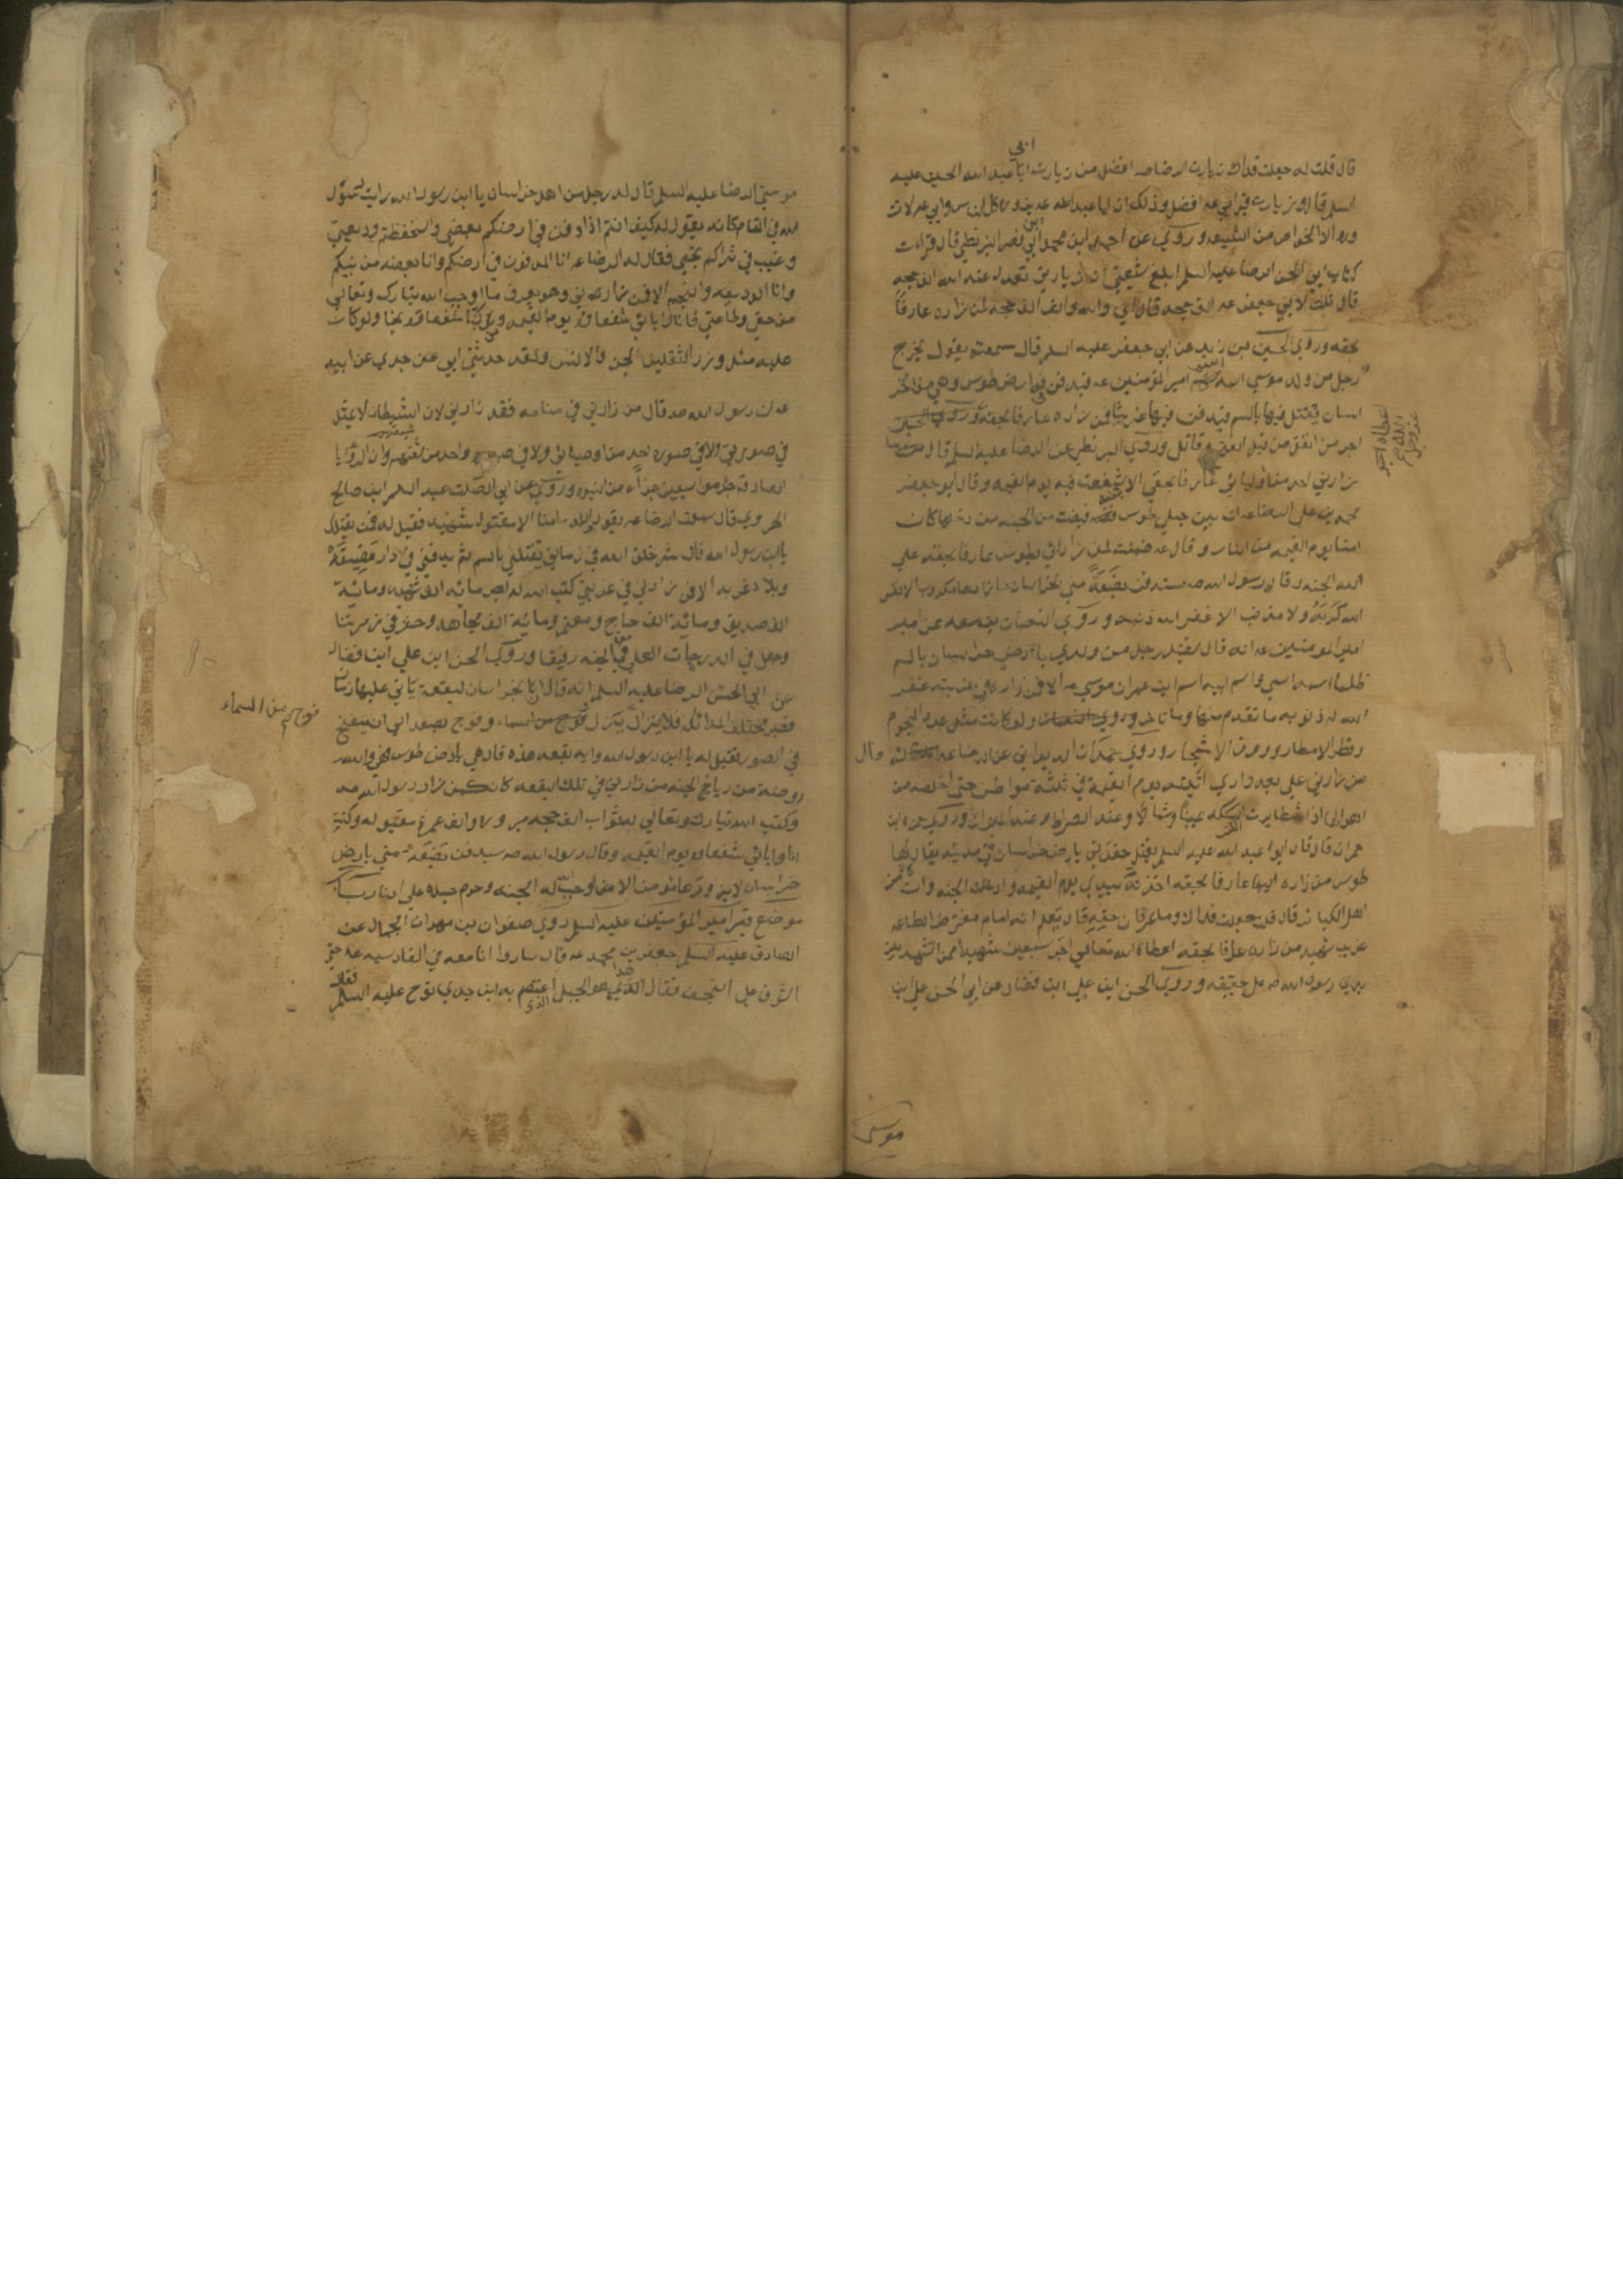 قال قلت له جعلت فداك زيارت الرضا عه افضل من زيارت ابا عبد الله الحسين عليه
ابي
السلم قال زيارت قبر ابي عه افضل وذلك ان ابا عبد الله عه يزوره كل الناس وابي عه لات
وره الا الخواص من الشيعه وروي عن احمد ابن محمد ابي نصر البزنطي قال قراءت
ابن
كتاب ابي الحسن الرضا عليه السلم ابلغ شيعتي ان زيارتي تعدل عند الله الف حجه
قال قلت لابي جعفر عه الف حجه قال اي والله والف الف حجه لمن زاره عارفا
بحقه وروي الحسين بن زيد عن ابي جعفر عليه السلم قال سمعته يقول يخرج
رجل من ولد موسي اسمه اسم امير المؤمنين عه فيدفن في ارض طوس وهي من الخر
اسان يقتل فيها بالسم فيدفن فيها غريبا فمن زاره عارفا بحقه
اعطاه الله عز وجل اجر
اجر من انفق من قبل الفتح وقاتل وروي البزنطي عن الرضا عليه السلم قال
زارني احد من اوليائي عارفا بحقي الا شفعت فيه يوم القيمه وقال ابو جعفر
محمد بن علي الرضا عه ان بين جبلي طوس قبضه قبضت من الجنه من دخلها كان
امنا يوم القيمه من النار وقال عه ضمنت لمن زار ابي بطوس عارفا بحقه علي
الله الجنه وقال رسول الله صه ستدفن بضعة مني بخراسان مازارها مكروب الا نفس
الله كربة ولا مذنب الا غفر الله ذنبه وروي النعمان بن سعد عن امير
امير المومنين عه انه قال سيقتل رجل من ولدي بارض خراسان بالسم
ظلما اسمه اسمي واسم ابيه اسم ابن عمران موسي عه الا فمن زاره في غربته غفر
الله له ذنوبه ما تقدم منها وما تاخر ولو كانت مثل عدد النجوم
وقطر الامطار وورق الاشجار وروي حمدان الديواني عن الرضا عه قال
من زارني علي بعد داري اتيته يوم القيمة في ثلثة مواطن حتي اخلصه من
اهوالها اذا تطايرت الكتب يمينا وشمالا وعند الصراط وعند الميزان وروي حمزه ابن
حمران قال قال ابو عبد الله عليه السلم يقتل حفدتي بارض خراسان في مدينه يقال لها
طوس من زاره اليها عارفا بحقه اخذته بيدي يوم القيمه وادخلته الجنه وان كان من
اهل الكبائر قال قلت جعلت فداك وما عرفان حقه قال يعلم انه امام مفترض الطاعه
غريب شهيد من زاره عارفا بحقه اعطاه الله تعالي اجر سبعين شهيدا ممن استشهد بين
يدي رسول الله صه علي حقيقه وروي الحسن ابن علي ابن فضال عن ابي الحسن علي ابن
موسي
موسي الرضا عليه السلم قال له رجل من اهل خراسان يا ابن رسول الله رايت رسول
الله في المنام كانه يقول له كيف انتم اذا دفن في ارضكم بعضي واستحفظتم وديعتي
وغيب في ثراكم نجمي فقال له الرضا عه انا المدفون في ارضكم وانا بضعه من نبيكم
وانا الوديعه والنجم الا فمن زارني وهو يعرف ما اوجب الله تبارك وتعالي
من حقي وطاعتي فانا وابائي شفعاؤه يوم القيمه ومن كنا شفعاؤه نجا ولو كان
عليه مثل وزر الثقلين الجن والانس ولقد حدثني ابي عن جدي عن ابيه
عه ان رسول الله صه قال من زارني في منامه فقد زارني لان الشيطان لا يتمثل
في صورتي ولا في صوره احد من اوصيائي ولا في صوره واحد من شيعتهم وان الرؤيا
الصادقه جزء من سبعين جزاء من النبوه وروي عن ابي الصلت عبد السلم ابن صالح
الهروي قال سمعت الرضا عه يقول والله ما منا الا مقتول شهيد فقيل له فمن يقتلك
يا ابن رسول الله قال شر خلق الله في زماني يقتلني بالسم ثم يدفنني في دار مضيقة
وبلاد غربه الا فمن زارني في غربتي كتب الله له اجر مائه الف شهيد ومائة
الف صديق ومائة الف حاج ومعتمر ومائة الف مجاهد وحشر في زمرتنا
وجعل في الدرجات العلي من الجنه رفيقنا وروي الحسن ابن علي ابن فضال
عن ابي الحسن الرضا عليه السلم انه قال ان بخراسان لبقعة ياتي عليها زمان
تصير مختلف الملائكه فلا يزال ينزل فوج من السماء وفوج يصعد الي ان ينفخ
فوج من السماء
في الصور فقيل له يا ابن رسول الله وايه بقعه هذه قال هي بارض طوس هي والله
روضة من رياض الجنه من زارني في تلك البقعه كان كمن زار رسول الله صه
وكتب الله تبارك وتعالي له ثواب الف حجه مبروره والف عمرة مقبوله وكنت
انا وابائي شفعاؤه يوم القيمه وقال رسول الله صه سيدفن بضعة مني بارض
خراسان لا يزورها مؤمن الا اوجب الله له الجنه وحرم جسده علي النار
موضع قبر امير المؤمنين عليه السلم روي صفوان بن مهران الجمال عن
الصادق عليه السلم جعفر بن محمد عه قال ساروا انا معه في القادسيه عه حتي
اشرف علي النجف فقال هذا هو الجبل الذي اعتصم به ابن جدي نوح عليه السلم فقال